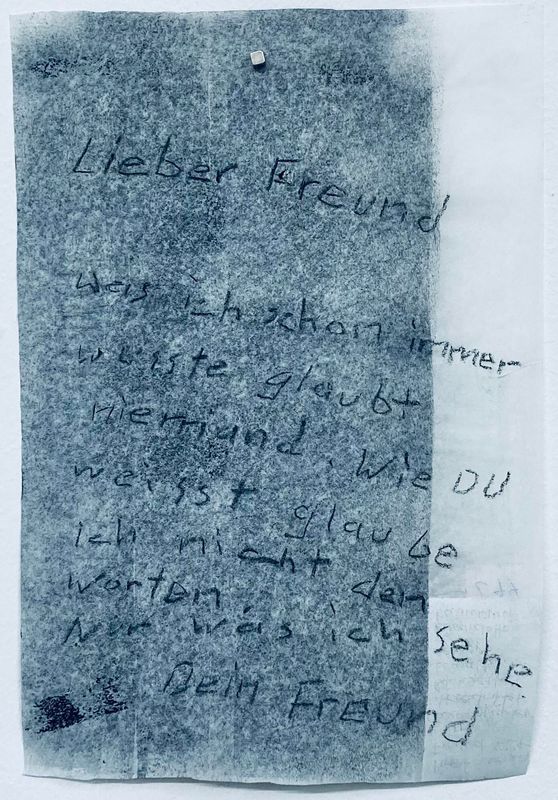 Lieber Freund
was ich schon immer
wusste glaubt
niemand. Wie DU
weisst glaube
ich nicht den
worten
Nur was ich sehe
Dein Freund